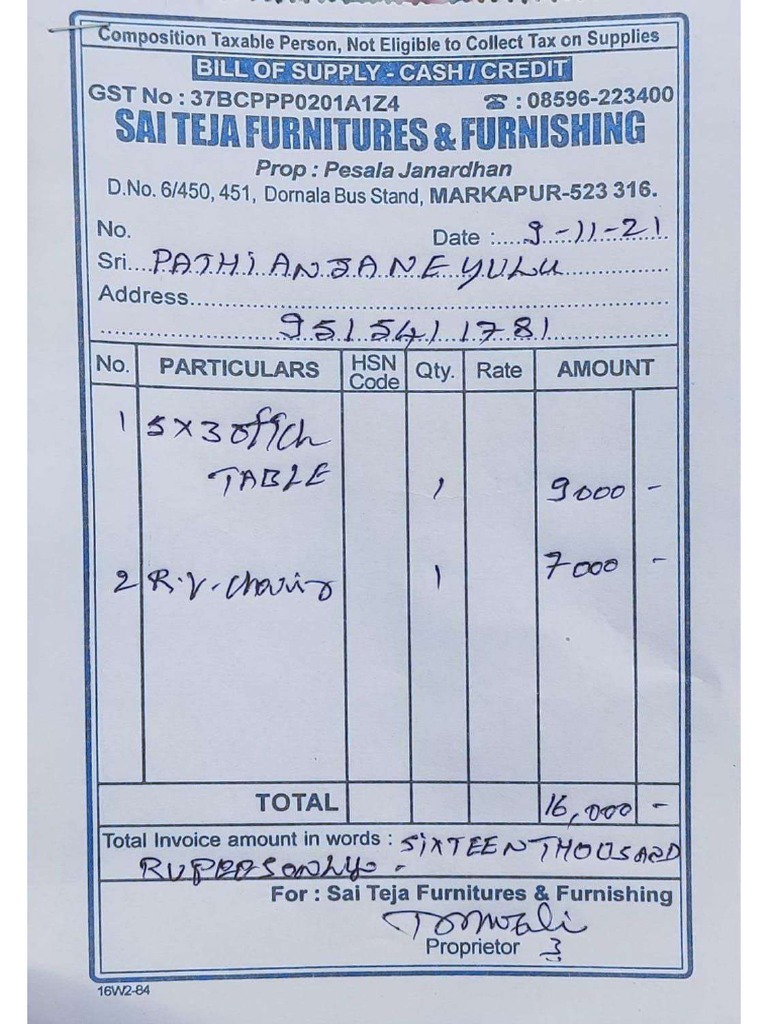 Composition Taxable Person, Not Eligible to Collect Tax on Supplies
BILL OF SUPPLY - CASH / CREDIT
GST No : 37BCPPP0201A1Z4 ☎ : 08596-223400
SAI TEJA FURNITURES & FURNISHING
Prop : Pesala Janardhan
D.No. 6/450, 451, Dornala Bus Stand, MARKAPUR-523 316.
No.
Date : 9-11-21
Sri. PATHI ANJANEYULU
Address
9515411781
No. PARTICULARS HSN Code Qty. Rate AMOUNT
1 5x3
TABLE 1 9000 -
2 R.V. 1 7000 -
TOTAL 16,000 -
Total Invoice amount in words : SIXTEEN THOUSAND
RUPEESONLY.
For : Sai Teja Furnitures & Furnishing
Proprietor
16W2-84